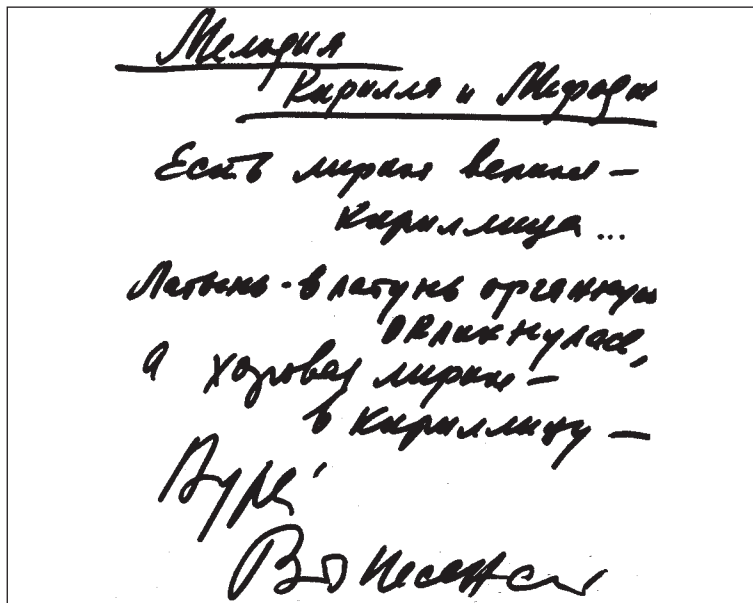 Мелодия
Кирилла и Мефодия
Есть лирика великая —
кириллица ...
Латынь - в латунь органную
откликнулась,
а хоровая лирика —
в кириллицу —
Андрей
Вознесенский